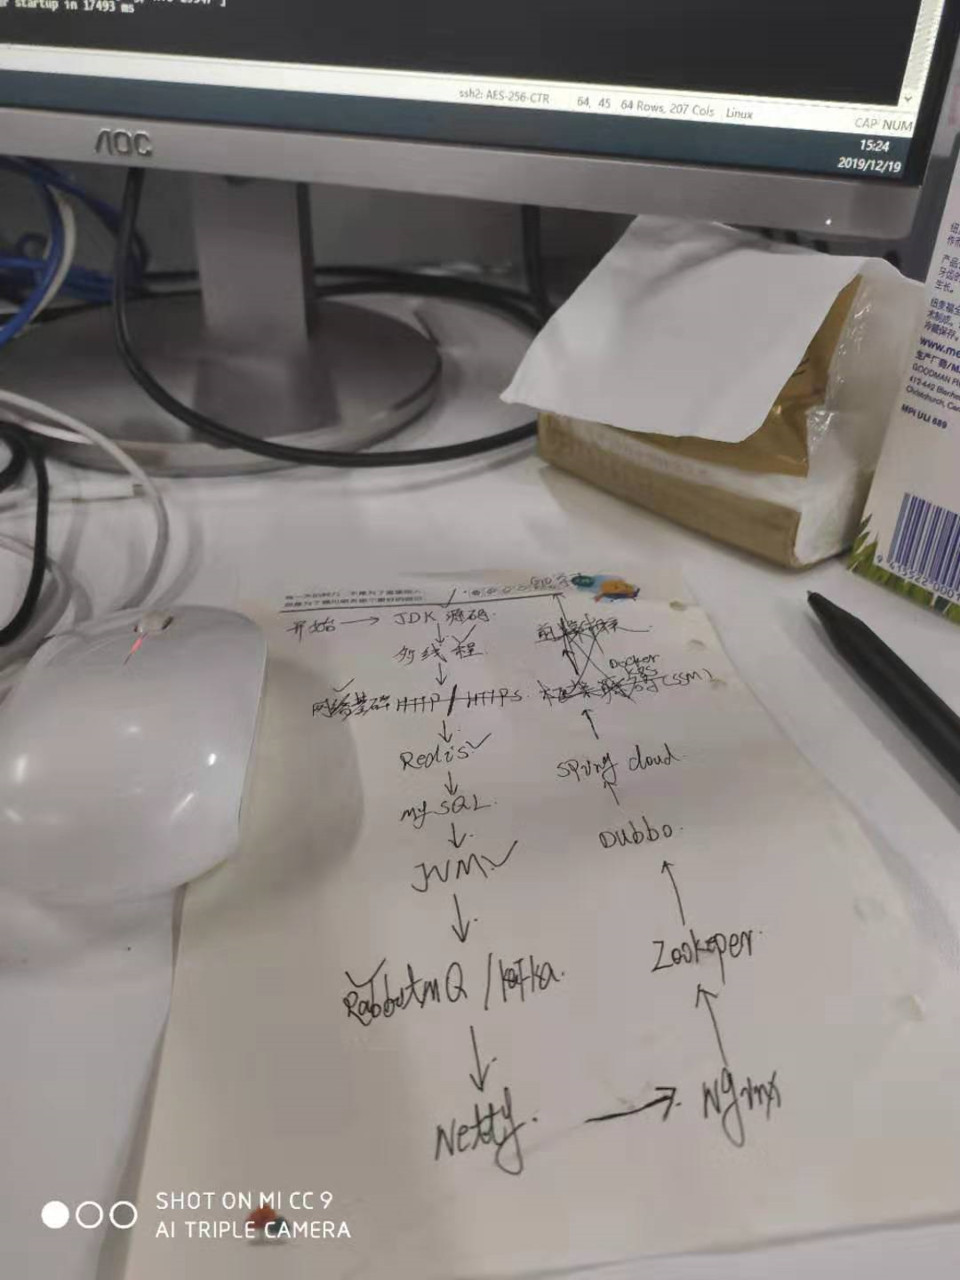 startup in 17493 ms
ssh2: AES-256-CTR 64, 45 64 Rows, 207 Cols Linux
CAP NUM
15:24
2019/12/19
AOC
产品
牙齿的
生长。
冷藏保存。
www.me
生产厂商/M
GOODMAN
MPI ULI 689
开始 → JDK 源码.
多线程
网络基础 HTTP / HTTPS.
Redis
mysQL.
JVM
RabbitmQ / kafka.
Netty.
Nginx
Zookeper.
Dubbo.
Spring cloud.
(SSM)
Docker
K8S
SHOT ON MI CC 9
AI TRIPLE CAMERA